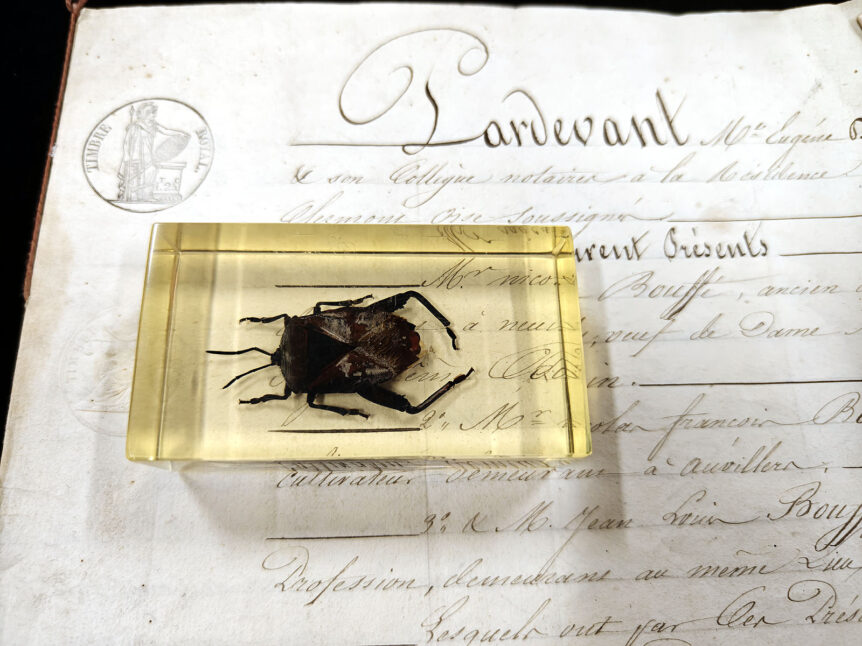 TIMBRE ROYAL
Pardevant Me Eugène
& son Collègue notaires à la Résidence
Clermont Oise soussignés
urent Présents
Mr nico
Bouffé, ancien
à neui veuf de Dame
in.
2o, Mr nicolas françois Bo
cultivateur demeurant à auvillers,
3o, & M. Jean Louis Bouff
Profession, demeurant au même Lieu,
Lesquels ont par Ces Prése